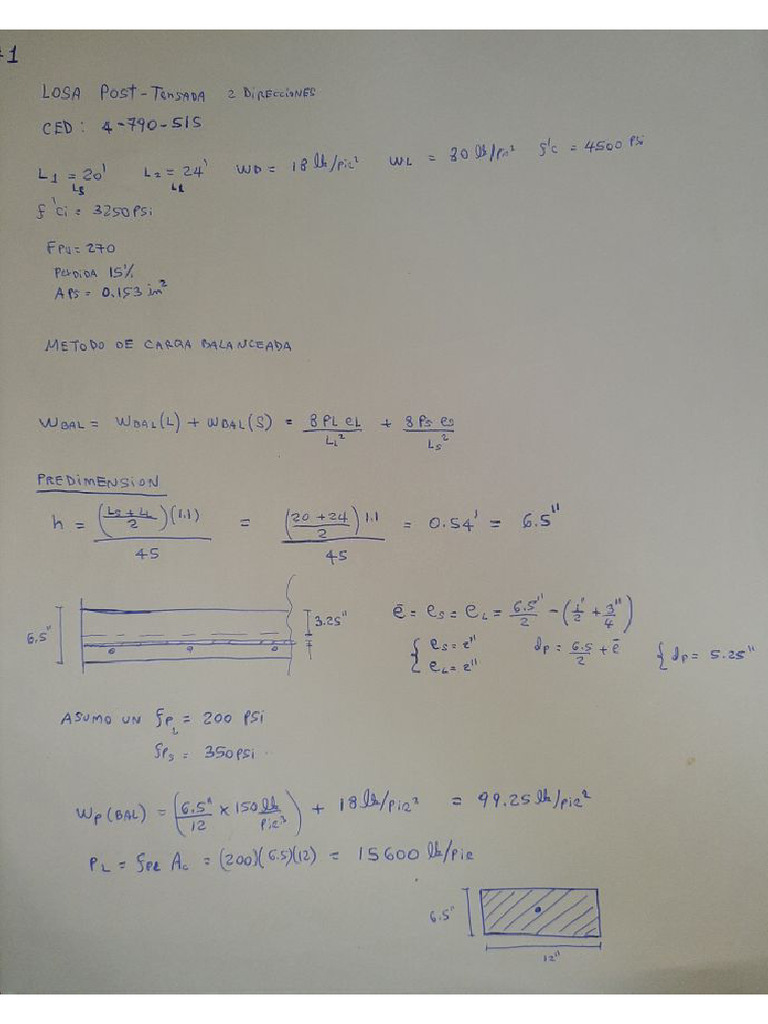 #1
LOSA POST-TENSADA 2 DIRECCIONES
CED: 4-790-515
L1 = 20' L2 = 24' WD = 18 lb/pie² WL = 30 lb/pie² f'c = 4500 PSi
Ls LL
f'ci = 3250PSi
FPU = 270
PERDIDA 15%
APS = 0.153 in²
METODO DE CARGA BALANCEADA
WBAL = WBAL(L) + WBAL(S) = 8 PL eL / LL² + 8 Ps es / Ls²
PREDIMENSION
h = ((Ls + LL)/2)(1.1) / 45 = ((20 + 24)/2) 1.1 / 45 = 0.54' = 6.5"
6.5" 3.25"
ē = es = eL = 6.5"/2 - (1"/2 + 3"/4)
{ es = 2" dp = 6.5/2 + ē { dp = 5.25"
eL = 2"
ASUMO UN fPL = 200 PSi
fPs = 350PSi
Wp(BAL) = (6.5"/12 x 150 lb/pie³) + 18 lb/pie³ = 99.25 lb/pie²
PL = fPL Ac = (200)(6.5)(12) = 15600 lb/pie
6.5"
12"